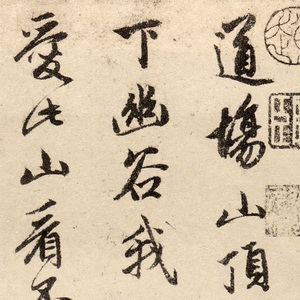 道場山頂
下幽谷我
愛此山看不